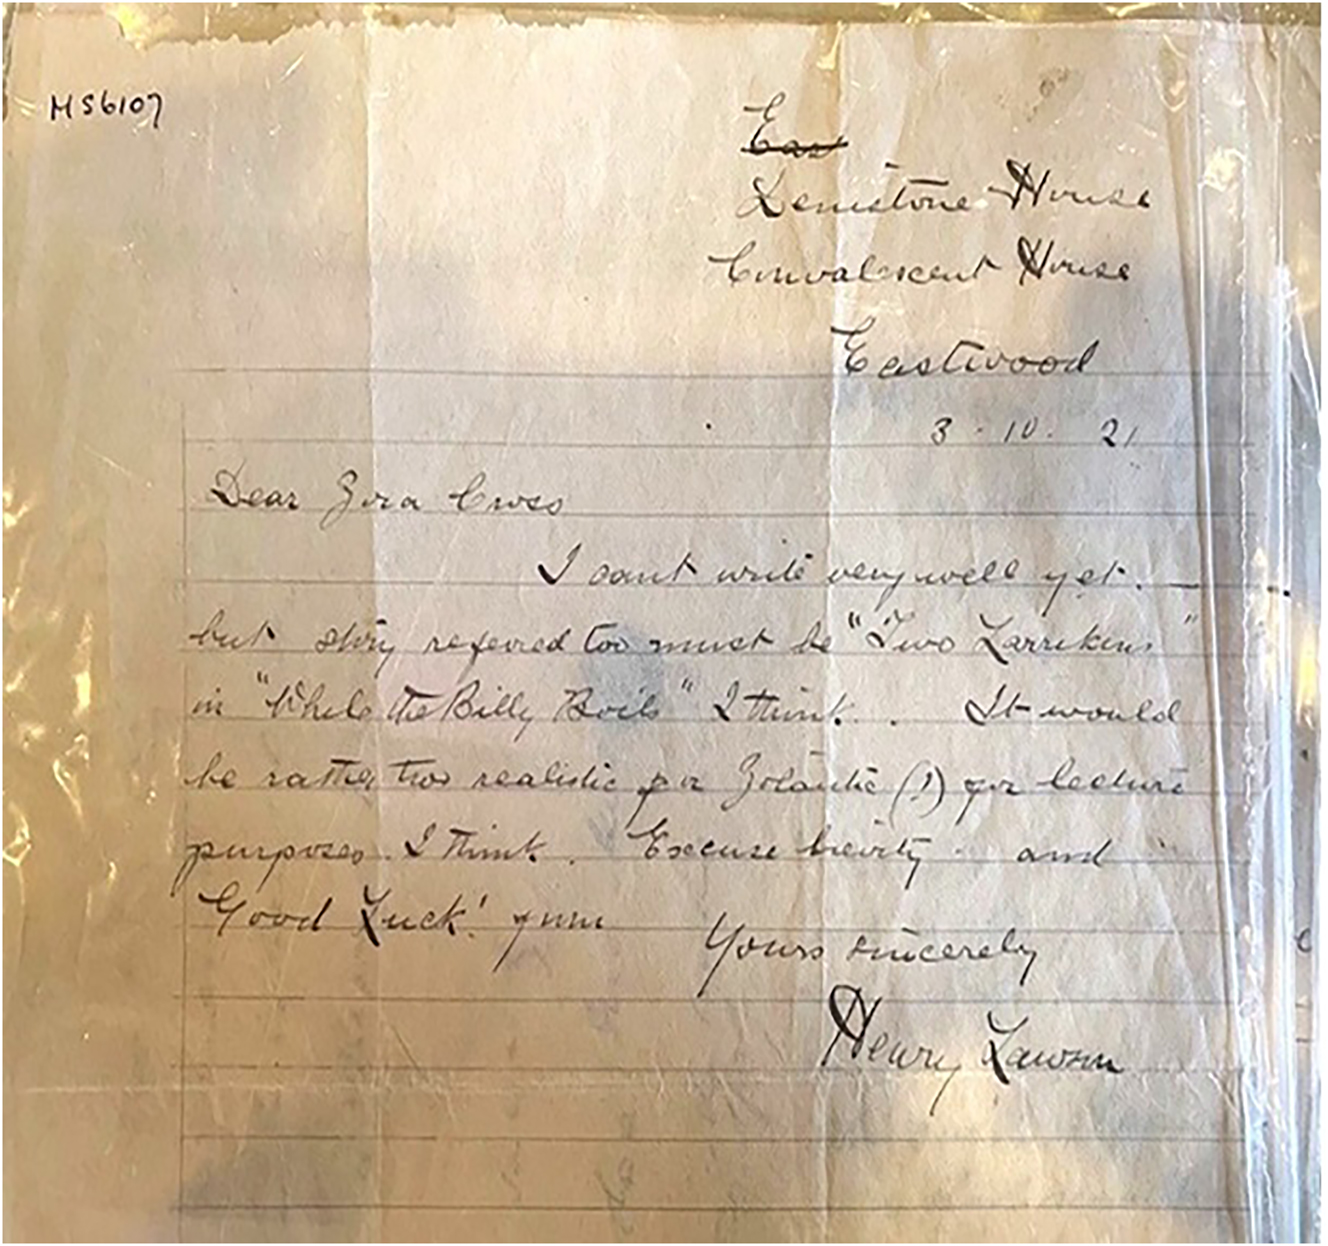 MS6107
Eas
Denistone House
Convalescent House
Eastwood
3 - 10. 21
Dear Zora Cross
I cant write very well yet. —
but story referred too must be "Two Larrikins"
in "While the Billy Boils" I think. . It would
be rather too realistic or Zolaistic (!) for lecture
purposes. I think. Excuse brevity and
Good Luck!
Yours sincerely
Henry Lawson